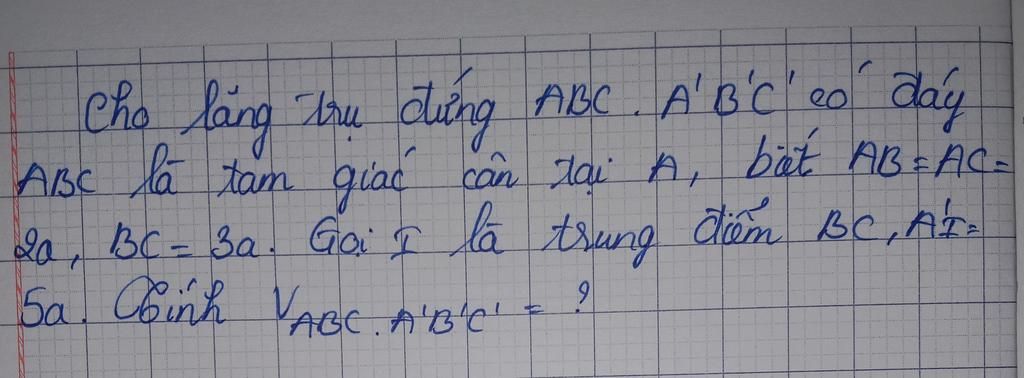 Cho lăng trụ đứng ABC.A'B'C' có đáy
ABC là tam giác cân tại A, biết AB=AC=
2a, BC=3a. Gọi I là trung điểm BC, A'I=
5a. Tính V_ABC.A'B'C' = ?